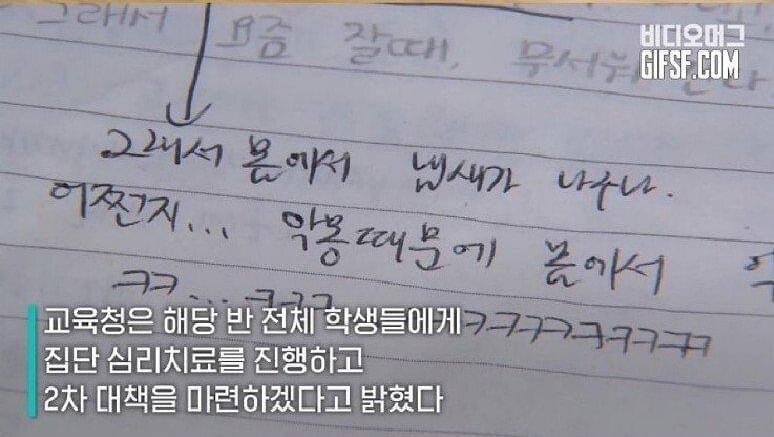 그래서 요즘 잘때, 무서워
비디오머그
GIFSF.COM
그래서 몸에서 냄새가 나구나.
어쩐지... 악몽때문에 몸에서
ㅋㅋ... ㅋㅋㅋ ㅋㅋㅋㅋㅋㅋㅋㅋ
교육청은 해당 반 전체 학생들에게
집단 심리치료를 진행하고
2차 대책을 마련하겠다고 밝혔다